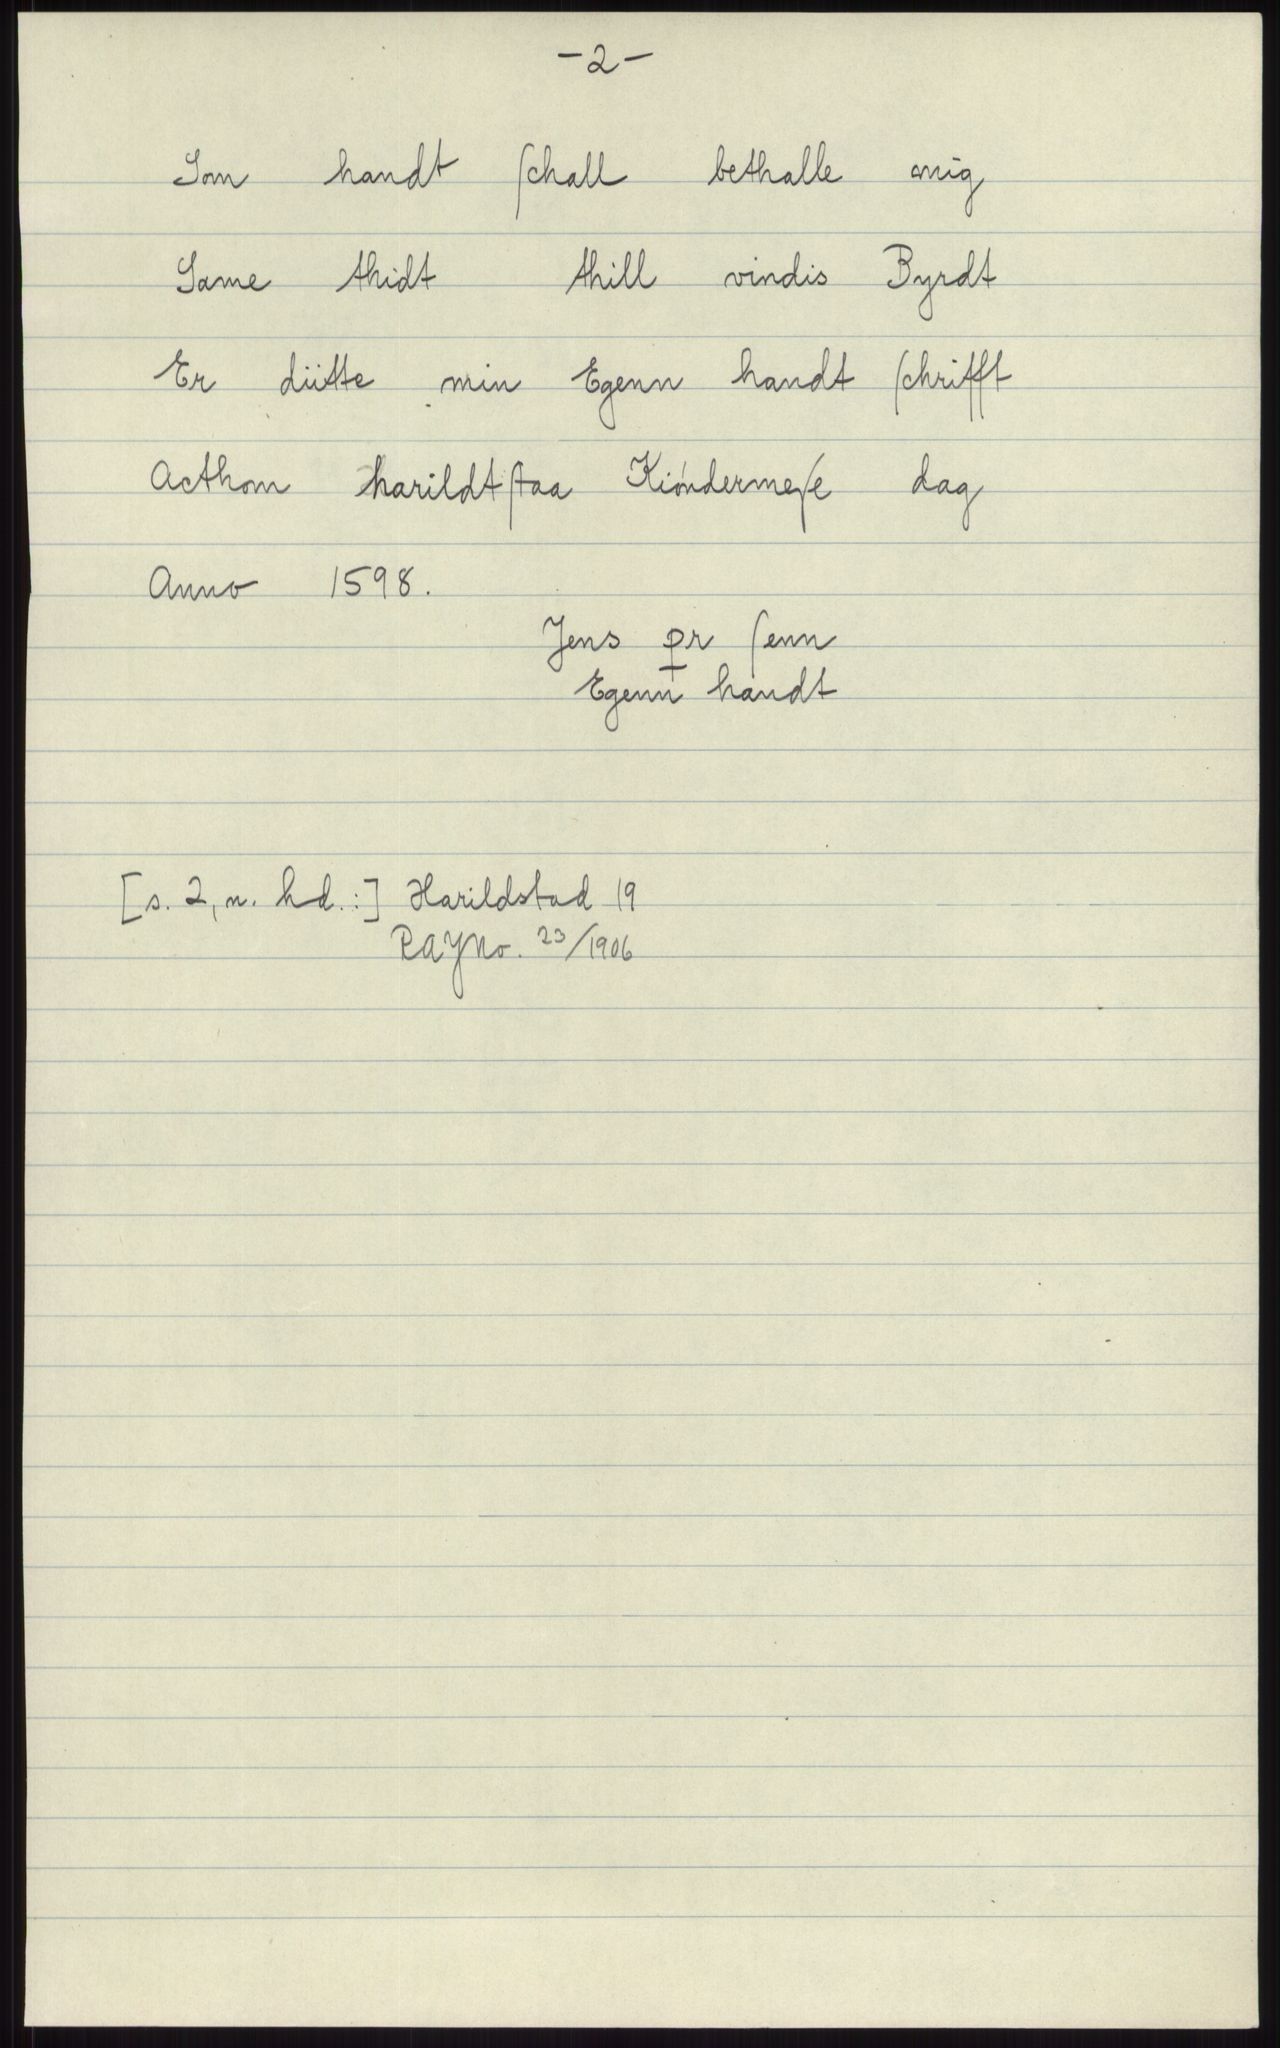 -2-
Som handt ſchall bethalle mig
Same thidt thill vindis Byrdt
Er dütte min Egenn handt ſchrifft
Acthom harildtſtaa Kiøndermeſe dag
Anno 1598.
Jens pr ſenn
Egenn handt
[s. 2, n. hd.:] Harildstad 19
RAJNo. 23/1906